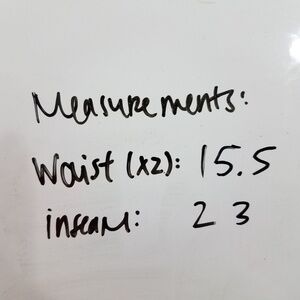 Measurements:
Waist (x2): 15.5
inseam: 23